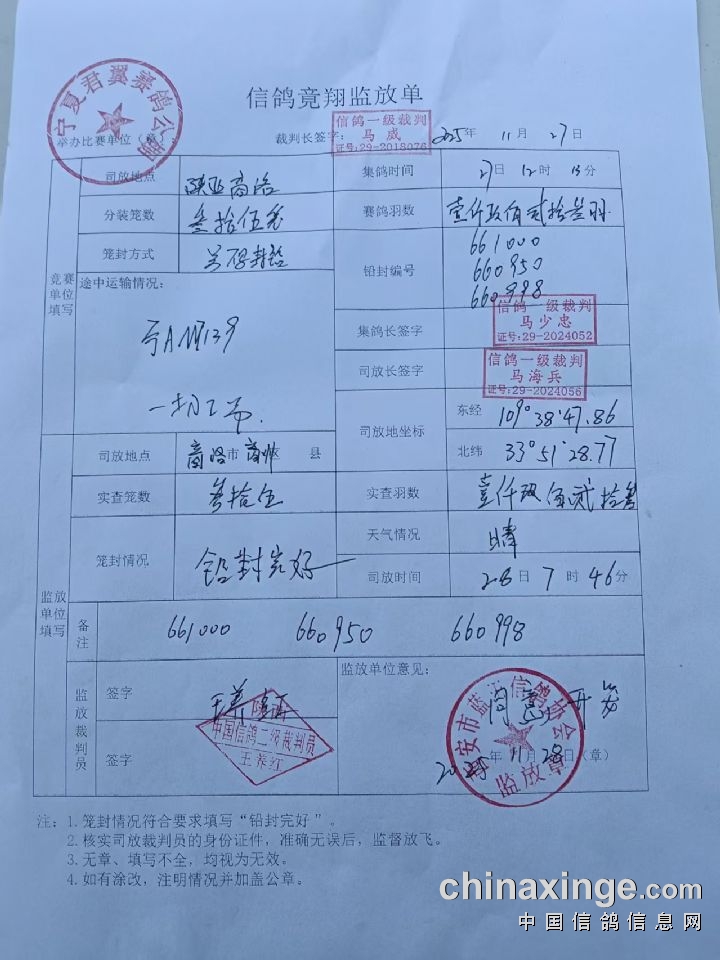 宁夏君翼赛鸽公棚
信鸽竟翔监放单
举办比赛单位（章）：
裁判长签字：
信鸽一级裁判
马威
证号:29-2018076
2025年 11月 27日
司放地点
集鸽时间 27日 12时 13分
分装笼数 叁拾伍
赛鸽羽数 壹仟玖佰贰拾叁羽
笼封方式
铅封编号
661000
660950
660998
竞赛单位填写
途中运输情况：
集鸽长签字
信鸽一级裁判
马少忠
证号:29-2024052
司放长签字
信鸽一级裁判
马海兵
证号:29-2024056
司放地坐标
东经 109°38'47.86
北纬 33°51'28.77
司放地点 商洛市 商州区 县
实查笼数 叁拾伍
实查羽数 壹仟玖佰贰拾叁
笼封情况 铅封完好
天气情况 晴
司放时间 28日 7时 46分
监放单位填写
备注 661000 660950 660998
监放裁判员
签字
签字
中国信鸽二级裁判员
王养红
监放单位意见：
同意开笼
监放章
2025年 11月 28日（章）
注：1.笼封情况符合要求填写“铅封完好”。
2.核实司放裁判员的身份证件，准确无误后，监督放飞。
3.无章、填写不全，均视为无效。
4.如有涂改，注明情况并加盖公章。
chinaxinge.com
中国信鸽信息网